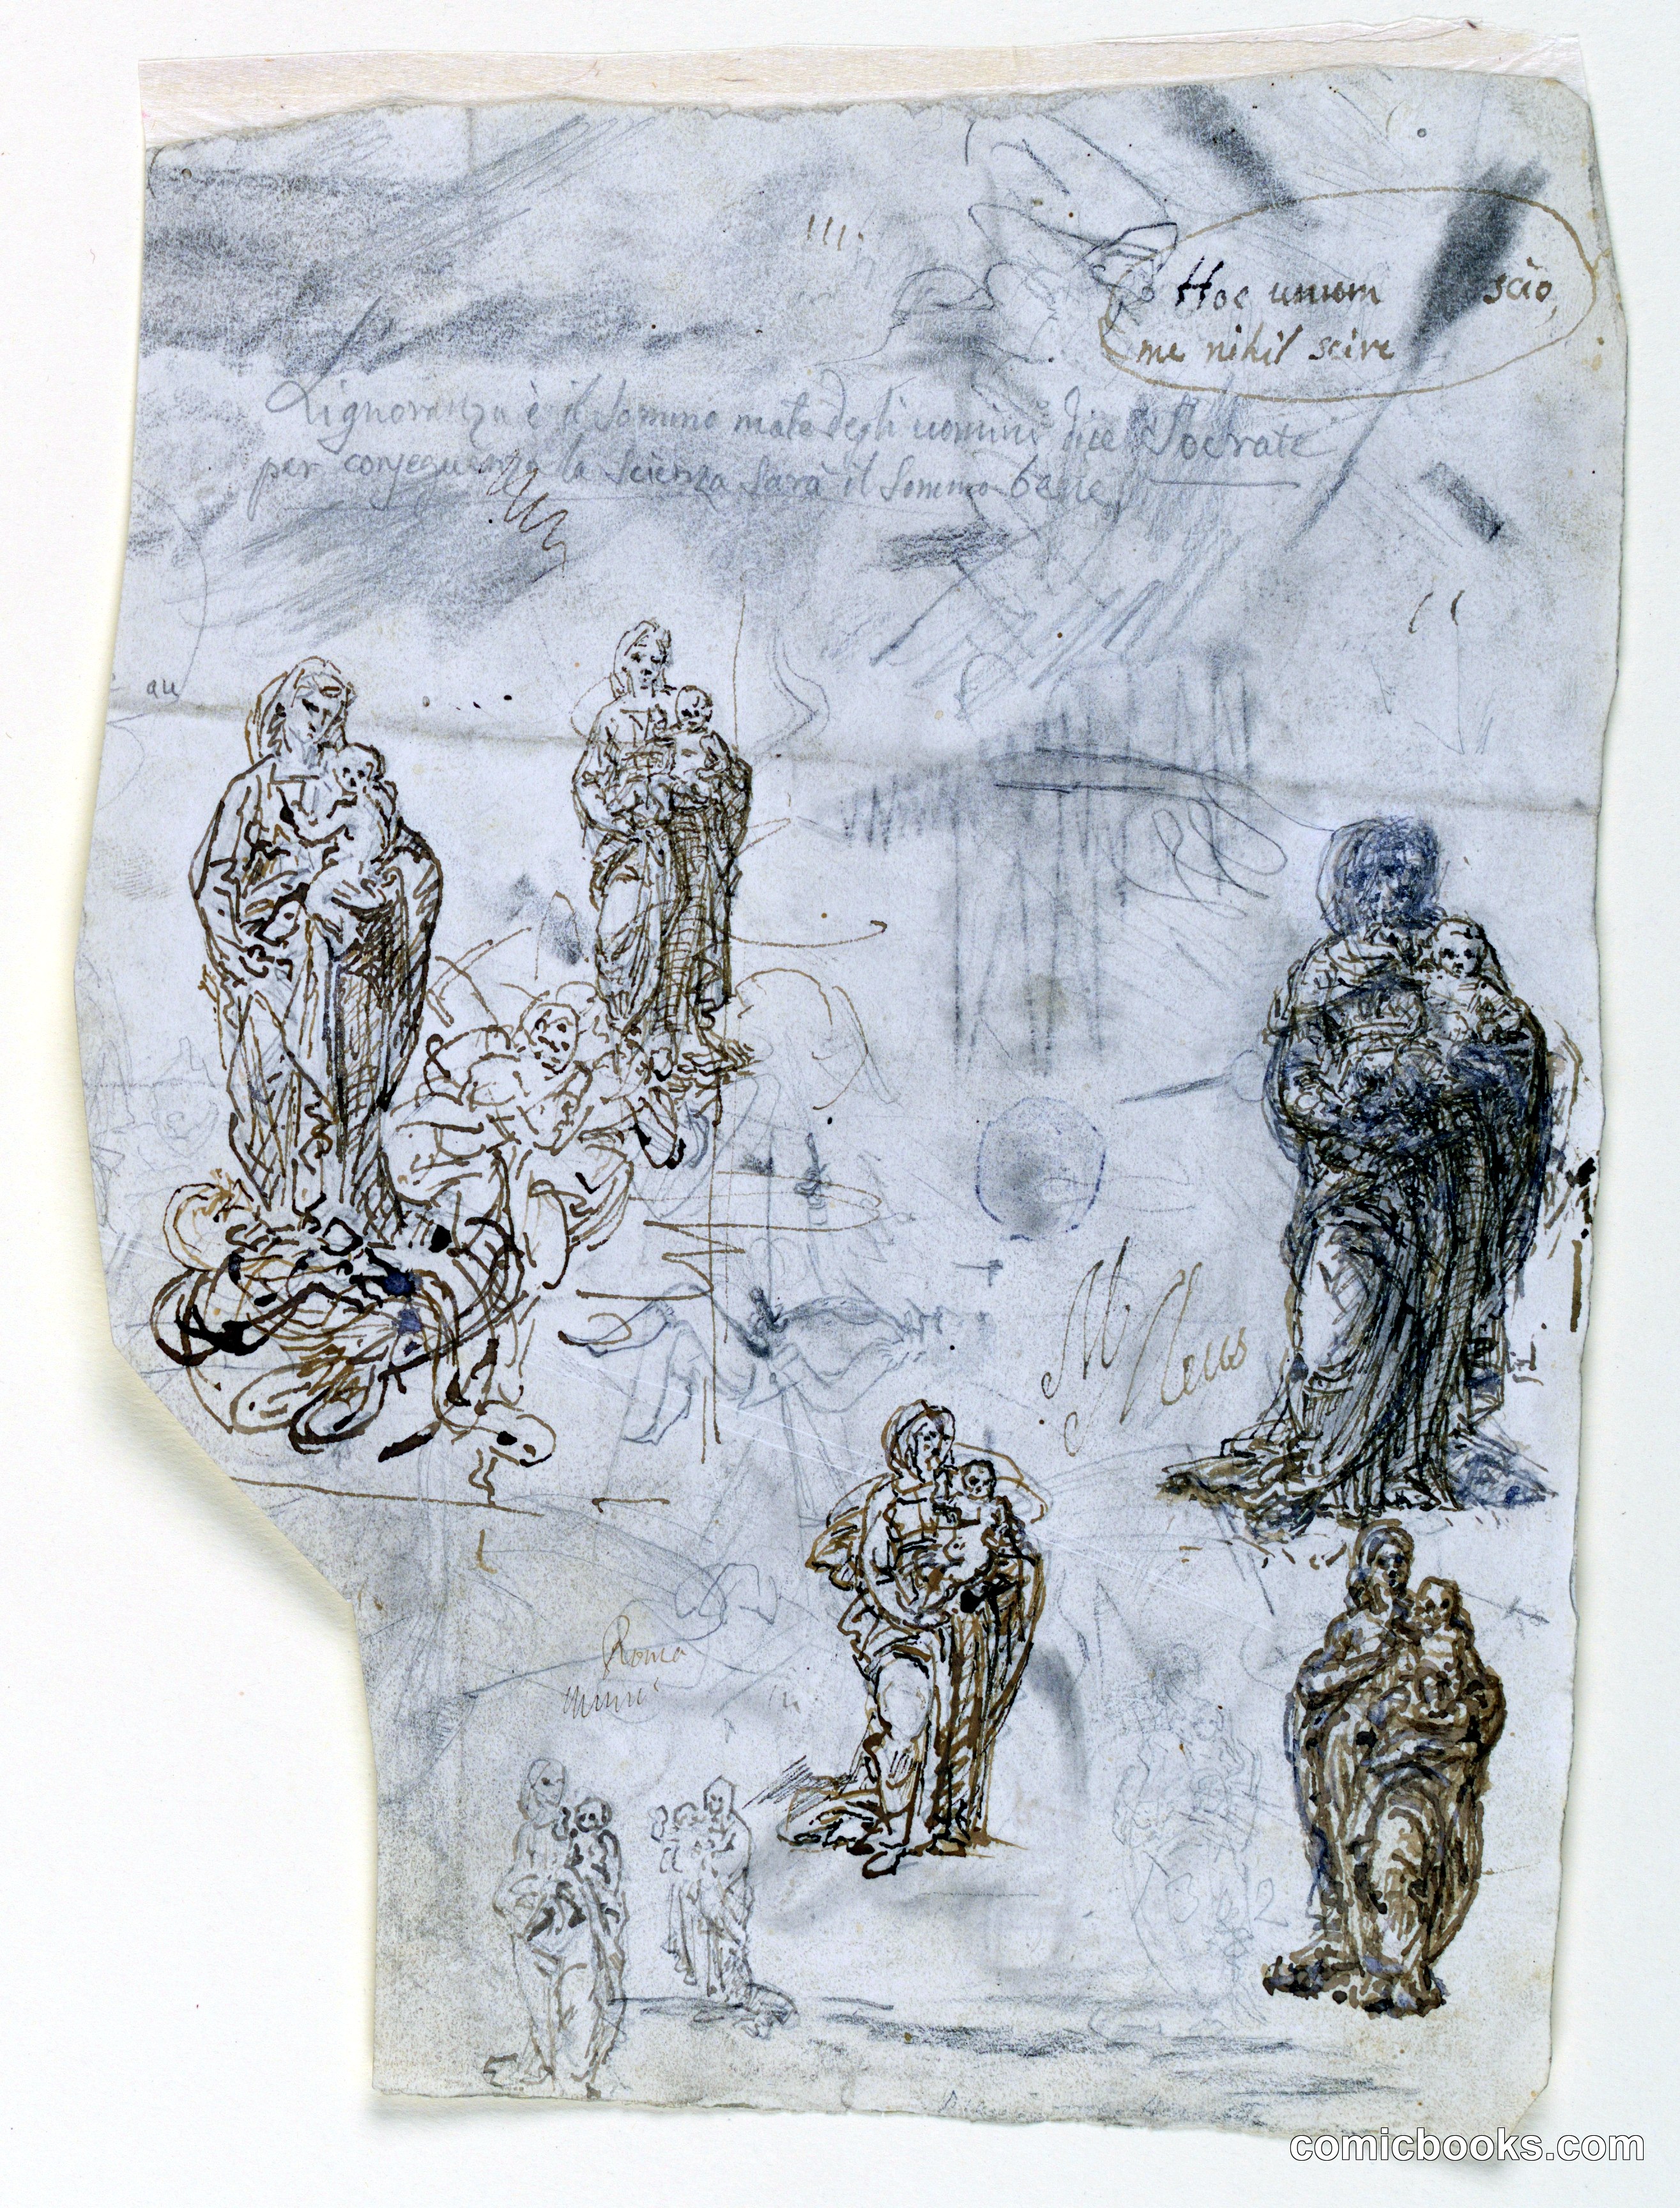 Hoc unum scio
me nihil scire
L'ignoranza è il sommo male degli uomini dice Socrate
per conseguenza la scienza sarà il sommo bene
au
Roma
3 2
comicbooks.com